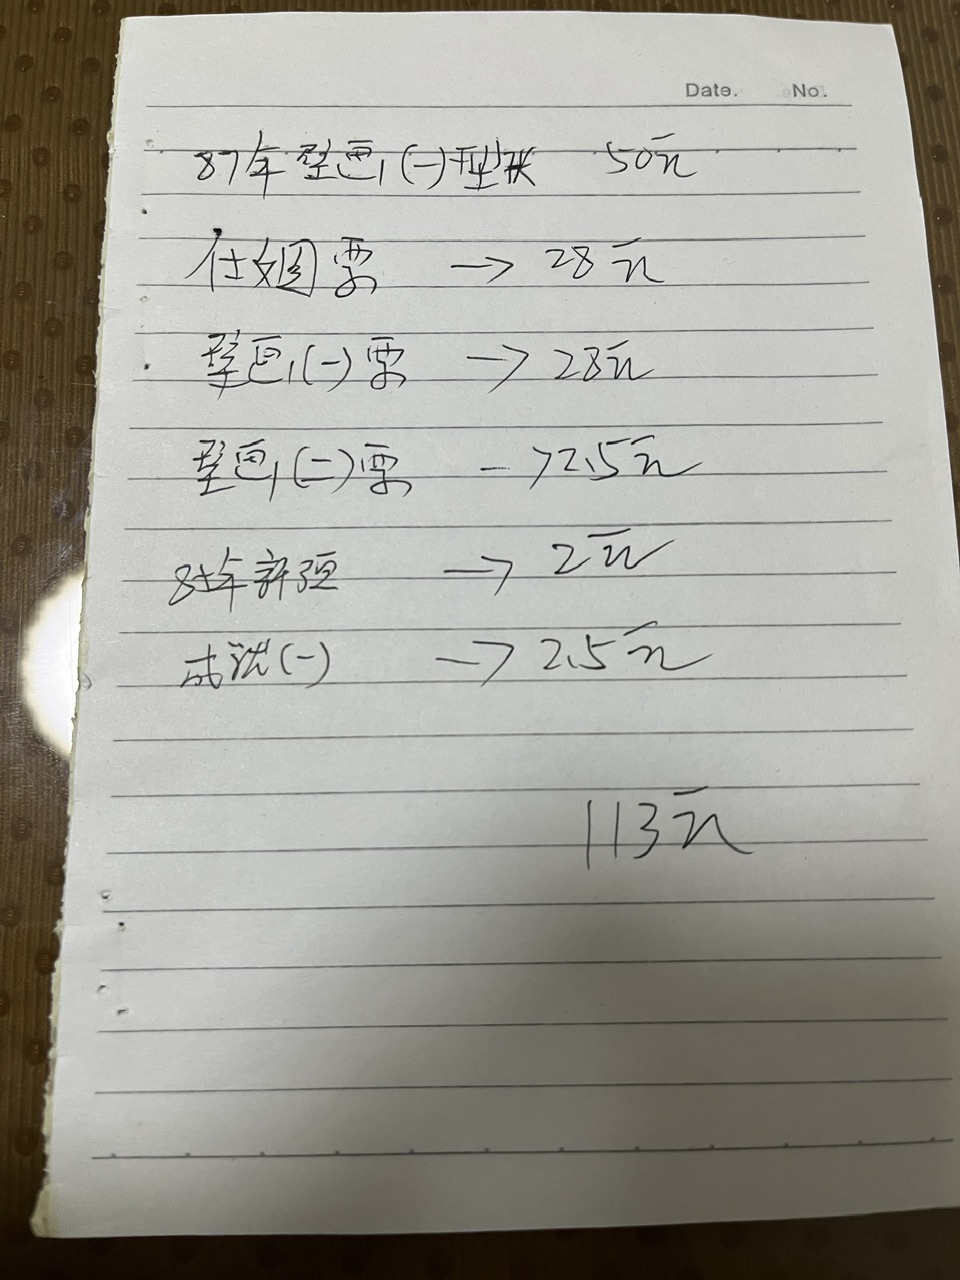 Date. No.
87年壁画(一)型张 50元
仕女图票 → 28元
壁画(一)票 → 28元
壁画(二)票 → 2.5元
85年新疆 → 2元
成说(一) → 2.5元
113元